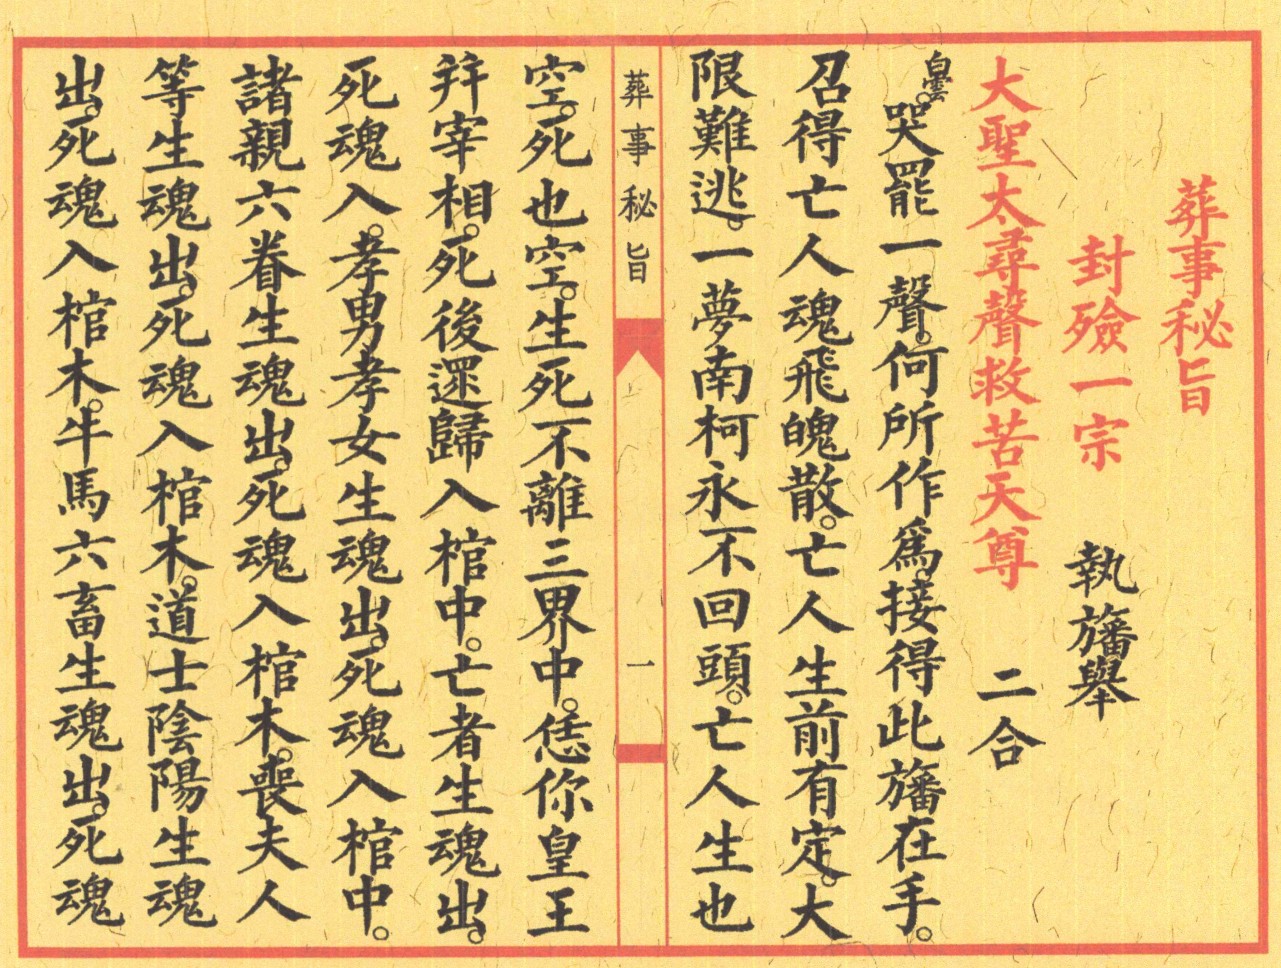 葬事秘旨
封殮一宗　執旛舉
大聖太尋聲救苦天尊　二合
白雲。哭罷一聲。何所作爲。接得此旛在手。
召得亡人魂飛魄散。亡人生前有定。大
限難逃。一夢南柯永不回頭。亡人生也
葬事秘旨　一
空。死也空。生死不離三界中。恁你皇王
并宰相。死後還歸入棺中。亡者生魂出。
死魂入。孝男孝女生魂出。死魂入棺中。
諸親六眷生魂出。死魂入棺木。喪夫人
等生魂出。死魂入棺木。道士陰陽生魂
出。死魂入棺木。牛馬六畜生魂出。死魂